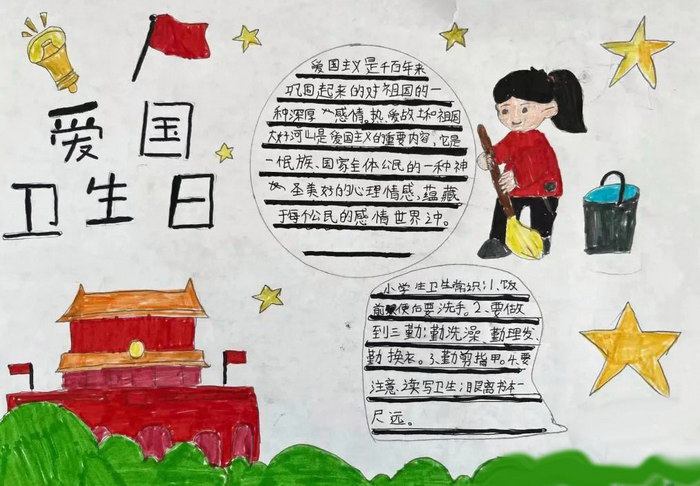 爱国
卫生日
爱国主义是千百年来
巩固起来的对祖国的一
种深厚的感情。热爱故土和祖国
大好河山是爱国主义的重要内容,它是
一民族、国家全体公民的一种神
圣美好的心理情感,蕴藏
于每个公民的感情世界之中。
小学生卫生常识:1、饭
前便后要洗手。2、要做
到三勤:勤洗澡、勤理发、
勤换衣。3、勤剪指甲。4、要
注意读写卫生:眼离书本一
尺远。